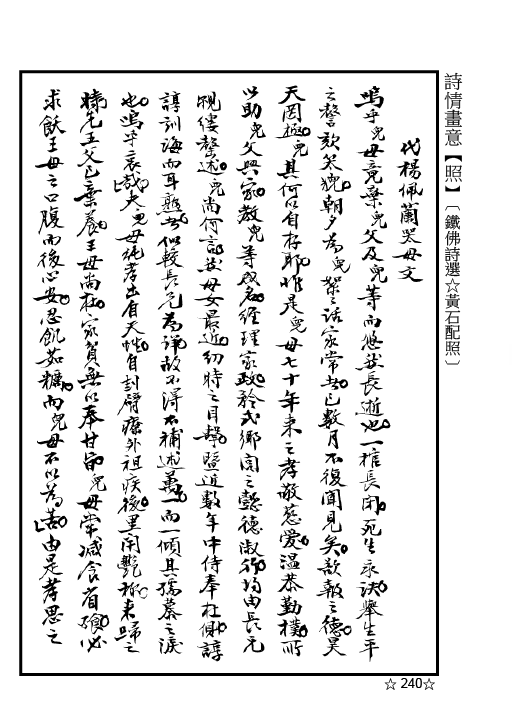 詩情畫意【照】〔鐵佛詩選☆黃石配照〕
代楊佩蘭哭母文
嗚乎兒母竟棄兒父及兒等而悠然長逝也一棺長閉死生永訣舉生平
之謦欬笑貌朝夕為兒絮話家常者已數月不復聞見矣欲報之德昊
天罔極兒其何以自存耶惟是兒母七十年來之孝敬慈愛溫恭勤樸所
以助兒父興家教兒等成名經理家政矜式鄉閭之懿德淑行均由長兄
覼縷聲述兒尚何言然母女最近幼時之目擊暨近數年中侍奉在側諄
諄訓誨而耳熟者似較長兄為詳故不得不補述萬一而一傾其孺慕之淚
也嗚乎哀哉夫兒母純孝出自天性自刲臂療外祖疾後里閈艷稱來歸之
時先王父已棄養王母尚在家貧無以奉甘旨兒母常減食省飱必
求飫王母之口腹而後心安忍飢茹糠而兒母不以為苦由是孝思之
☆ 240☆